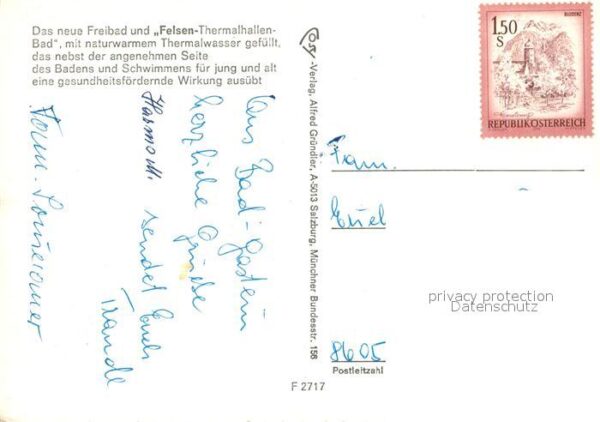 Das neue Freibad und „Felsen-Thermalhallen-
Bad", mit naturwarmem Thermalwasser gefüllt,
das nebst der angenehmen Seite
des Badens und Schwimmens für jung und alt
eine gesundheitsfördernde Wirkung ausübt
Aus Bad-Gastein
herzliche Grüße
sendet Euch
Traudl
Fam.
8605
Postleitzahl
Cosy-Verlag, Alfred Gründler, A-5013 Salzburg, Münchner Bundesstr. 156
F 2717
1.50
S
BLUDENZ
REPUBLIK ÖSTERREICH
privacy protection
Datenschutz